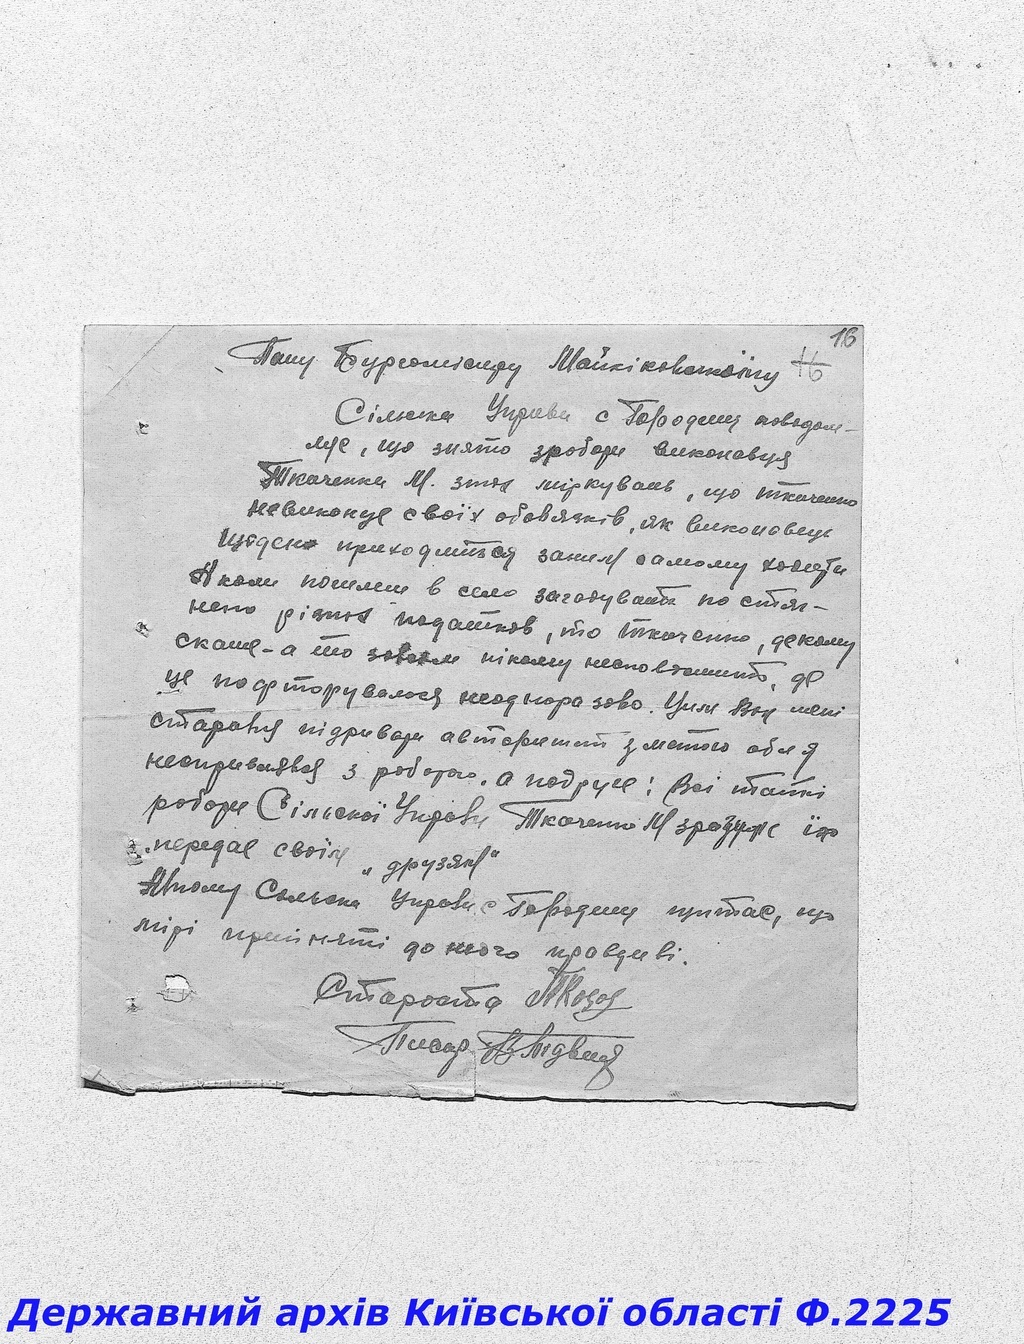 16
Пану Бургомістру
Сільська Управа с Городищ повідом-
ляє, що знято з роботи виконавця
Ткаченка М. з тих міркувань, що Ткаченко
невиконує своїх обовязків, як виконавець
Щоден приходиться заним самому ходити
А коли пошлеш в село загадувати по стяг-
нено різних податков, то Ткаченко, декому
скаше - а то зовсім нікому несповістить, де
це повторувалося неодноразово. Цим Вон мені
старався підривати авторитет з метою аби я
несправлявся з роботою. А подруге: Всі такі
роботи Сільскої Управи Ткаченко М зразуж їх
передає своїм „друзям"
А тому Сільська Управа с Городищ щитає, що
мірі прийняті до нього правдиві.
Староста
Писар
Державний архів Київської області Ф.2225